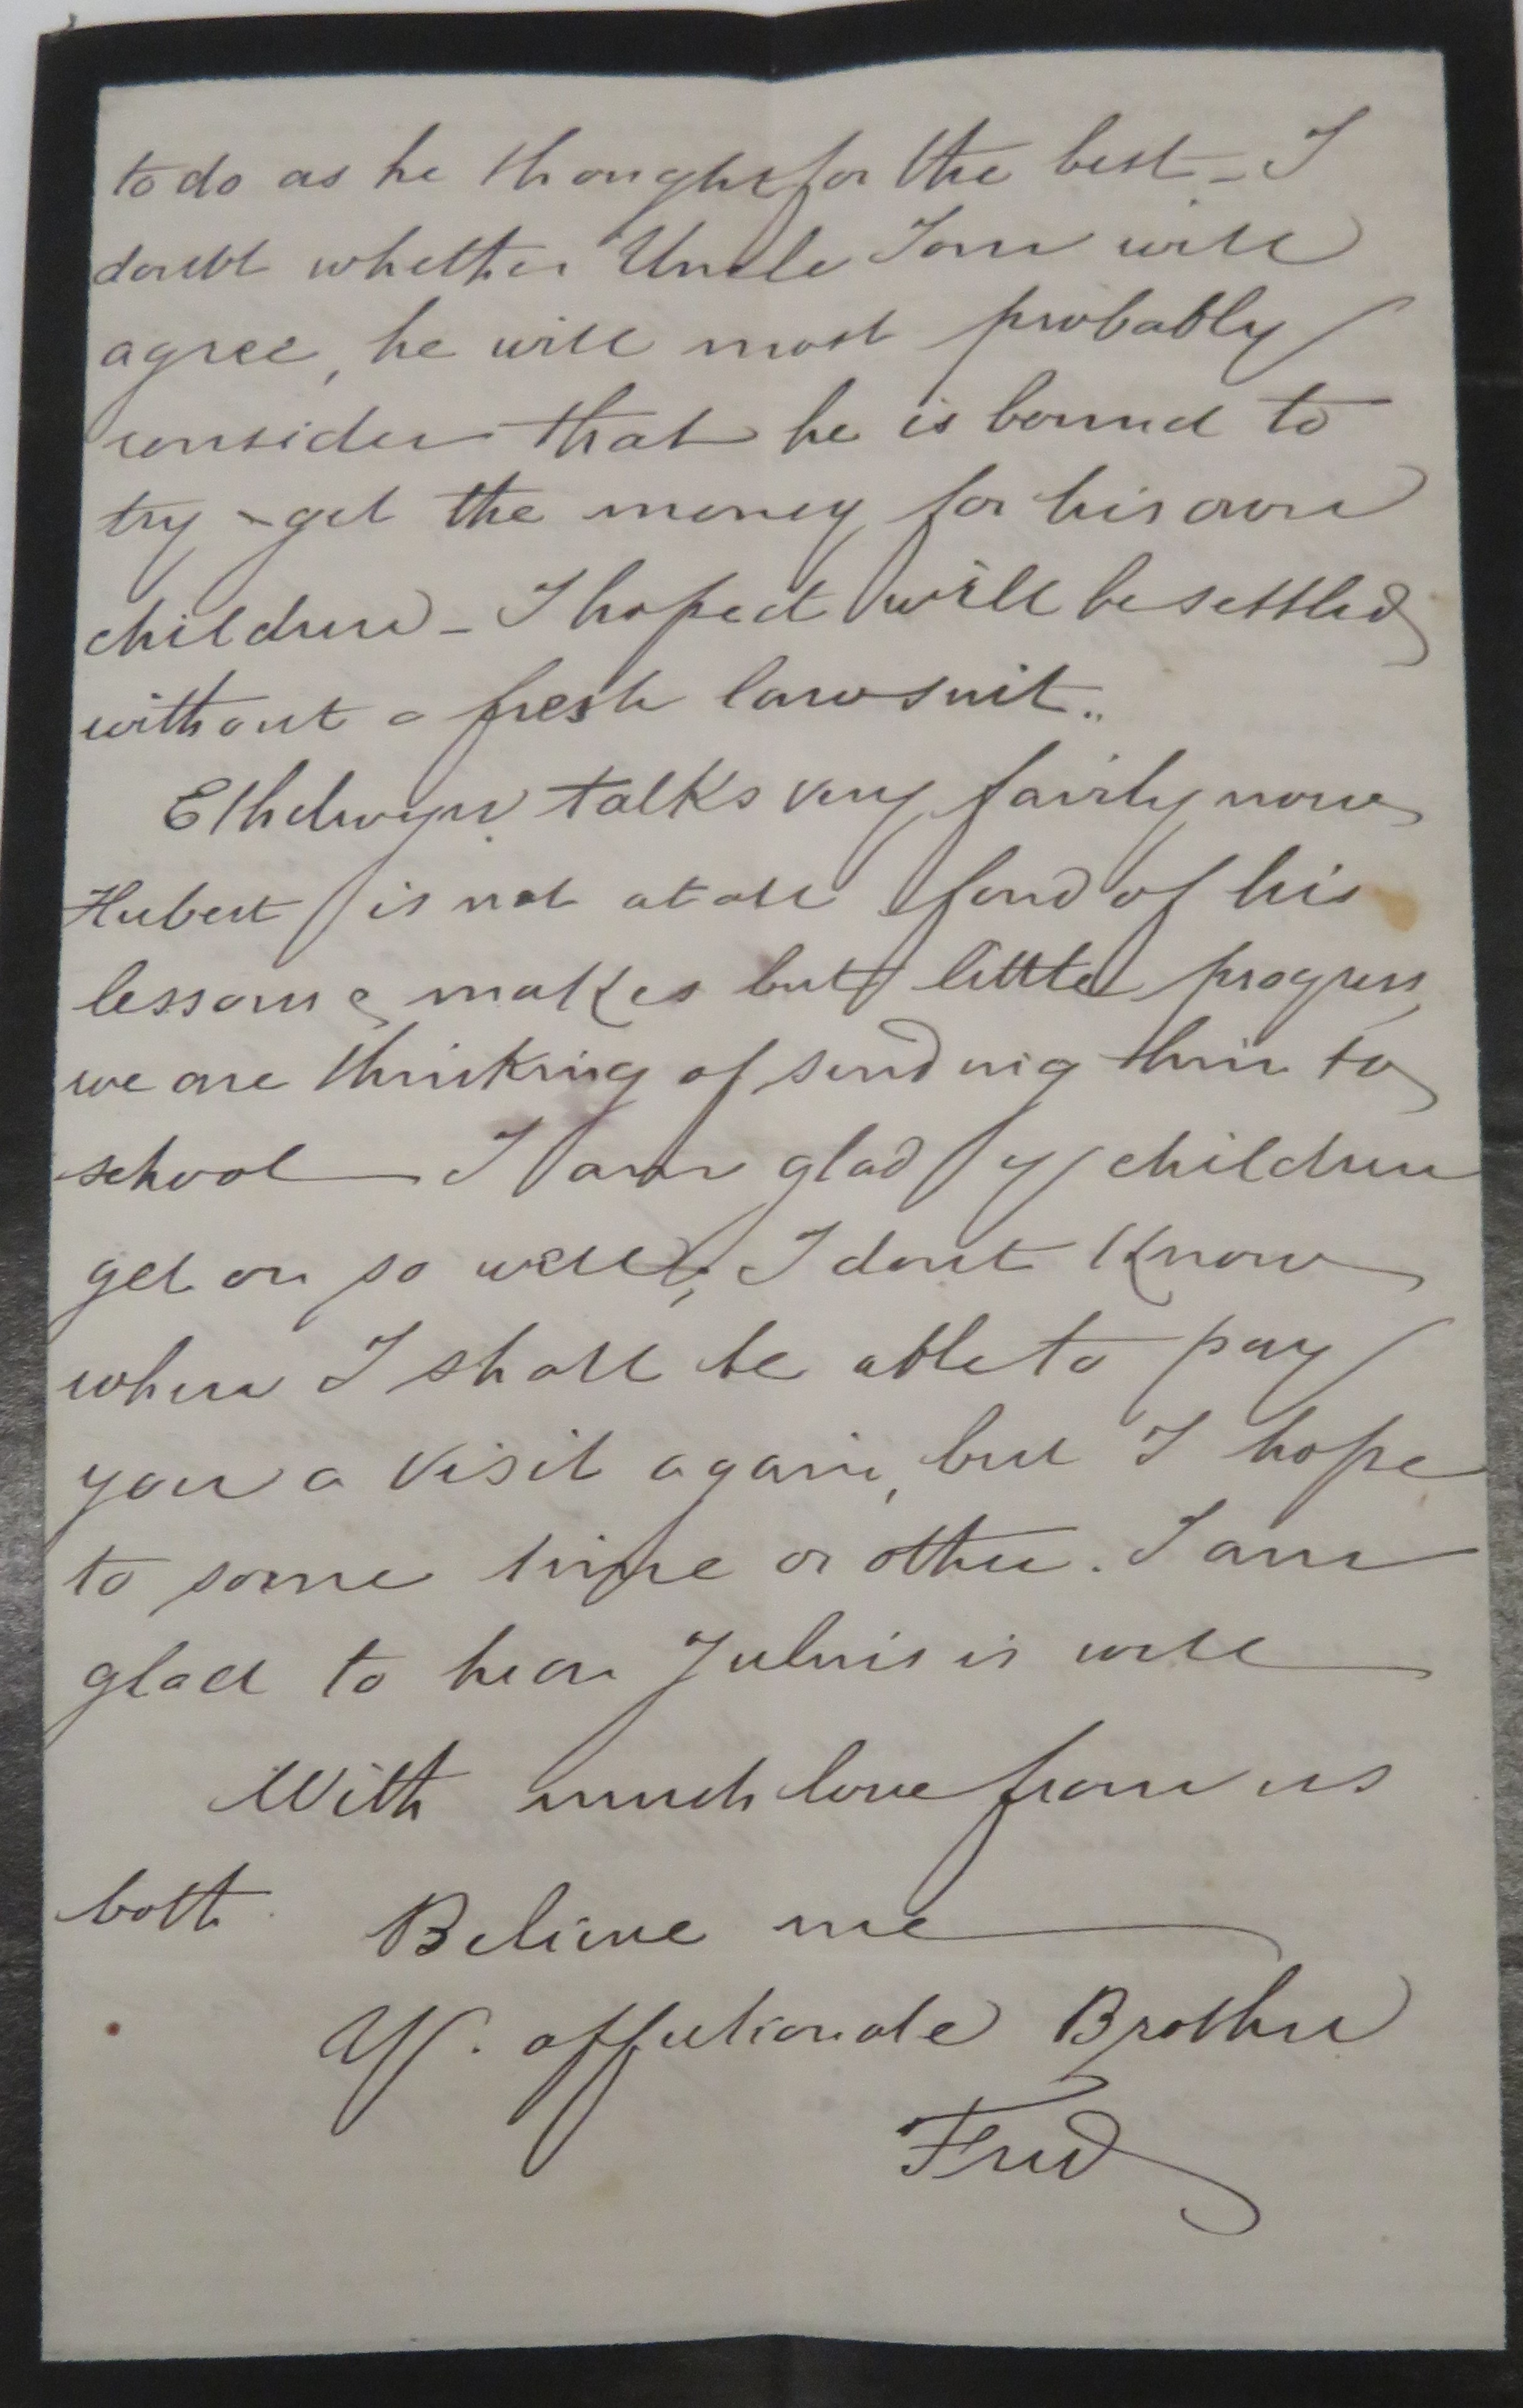 to do as he thought for the best – I
doubt whether Uncle Tom will
agree, he will most probably
consider that he is bound to
try & get the money for his own
children – I hope it will be settled
without a fresh lawsuit..
Ethelwyn talks very fairly now
Hubert is not at all fond of his
lessons & makes but little progress,
we are thinking of sending him to
school I am glad yr children
get on so well, I dont know
when I shall be able to pay
you a visit again, but I hope
to some time or other. I am
glad to hear Julius is well
With much love from us
both. Believe me
Yr. affectionate Brother
Fred